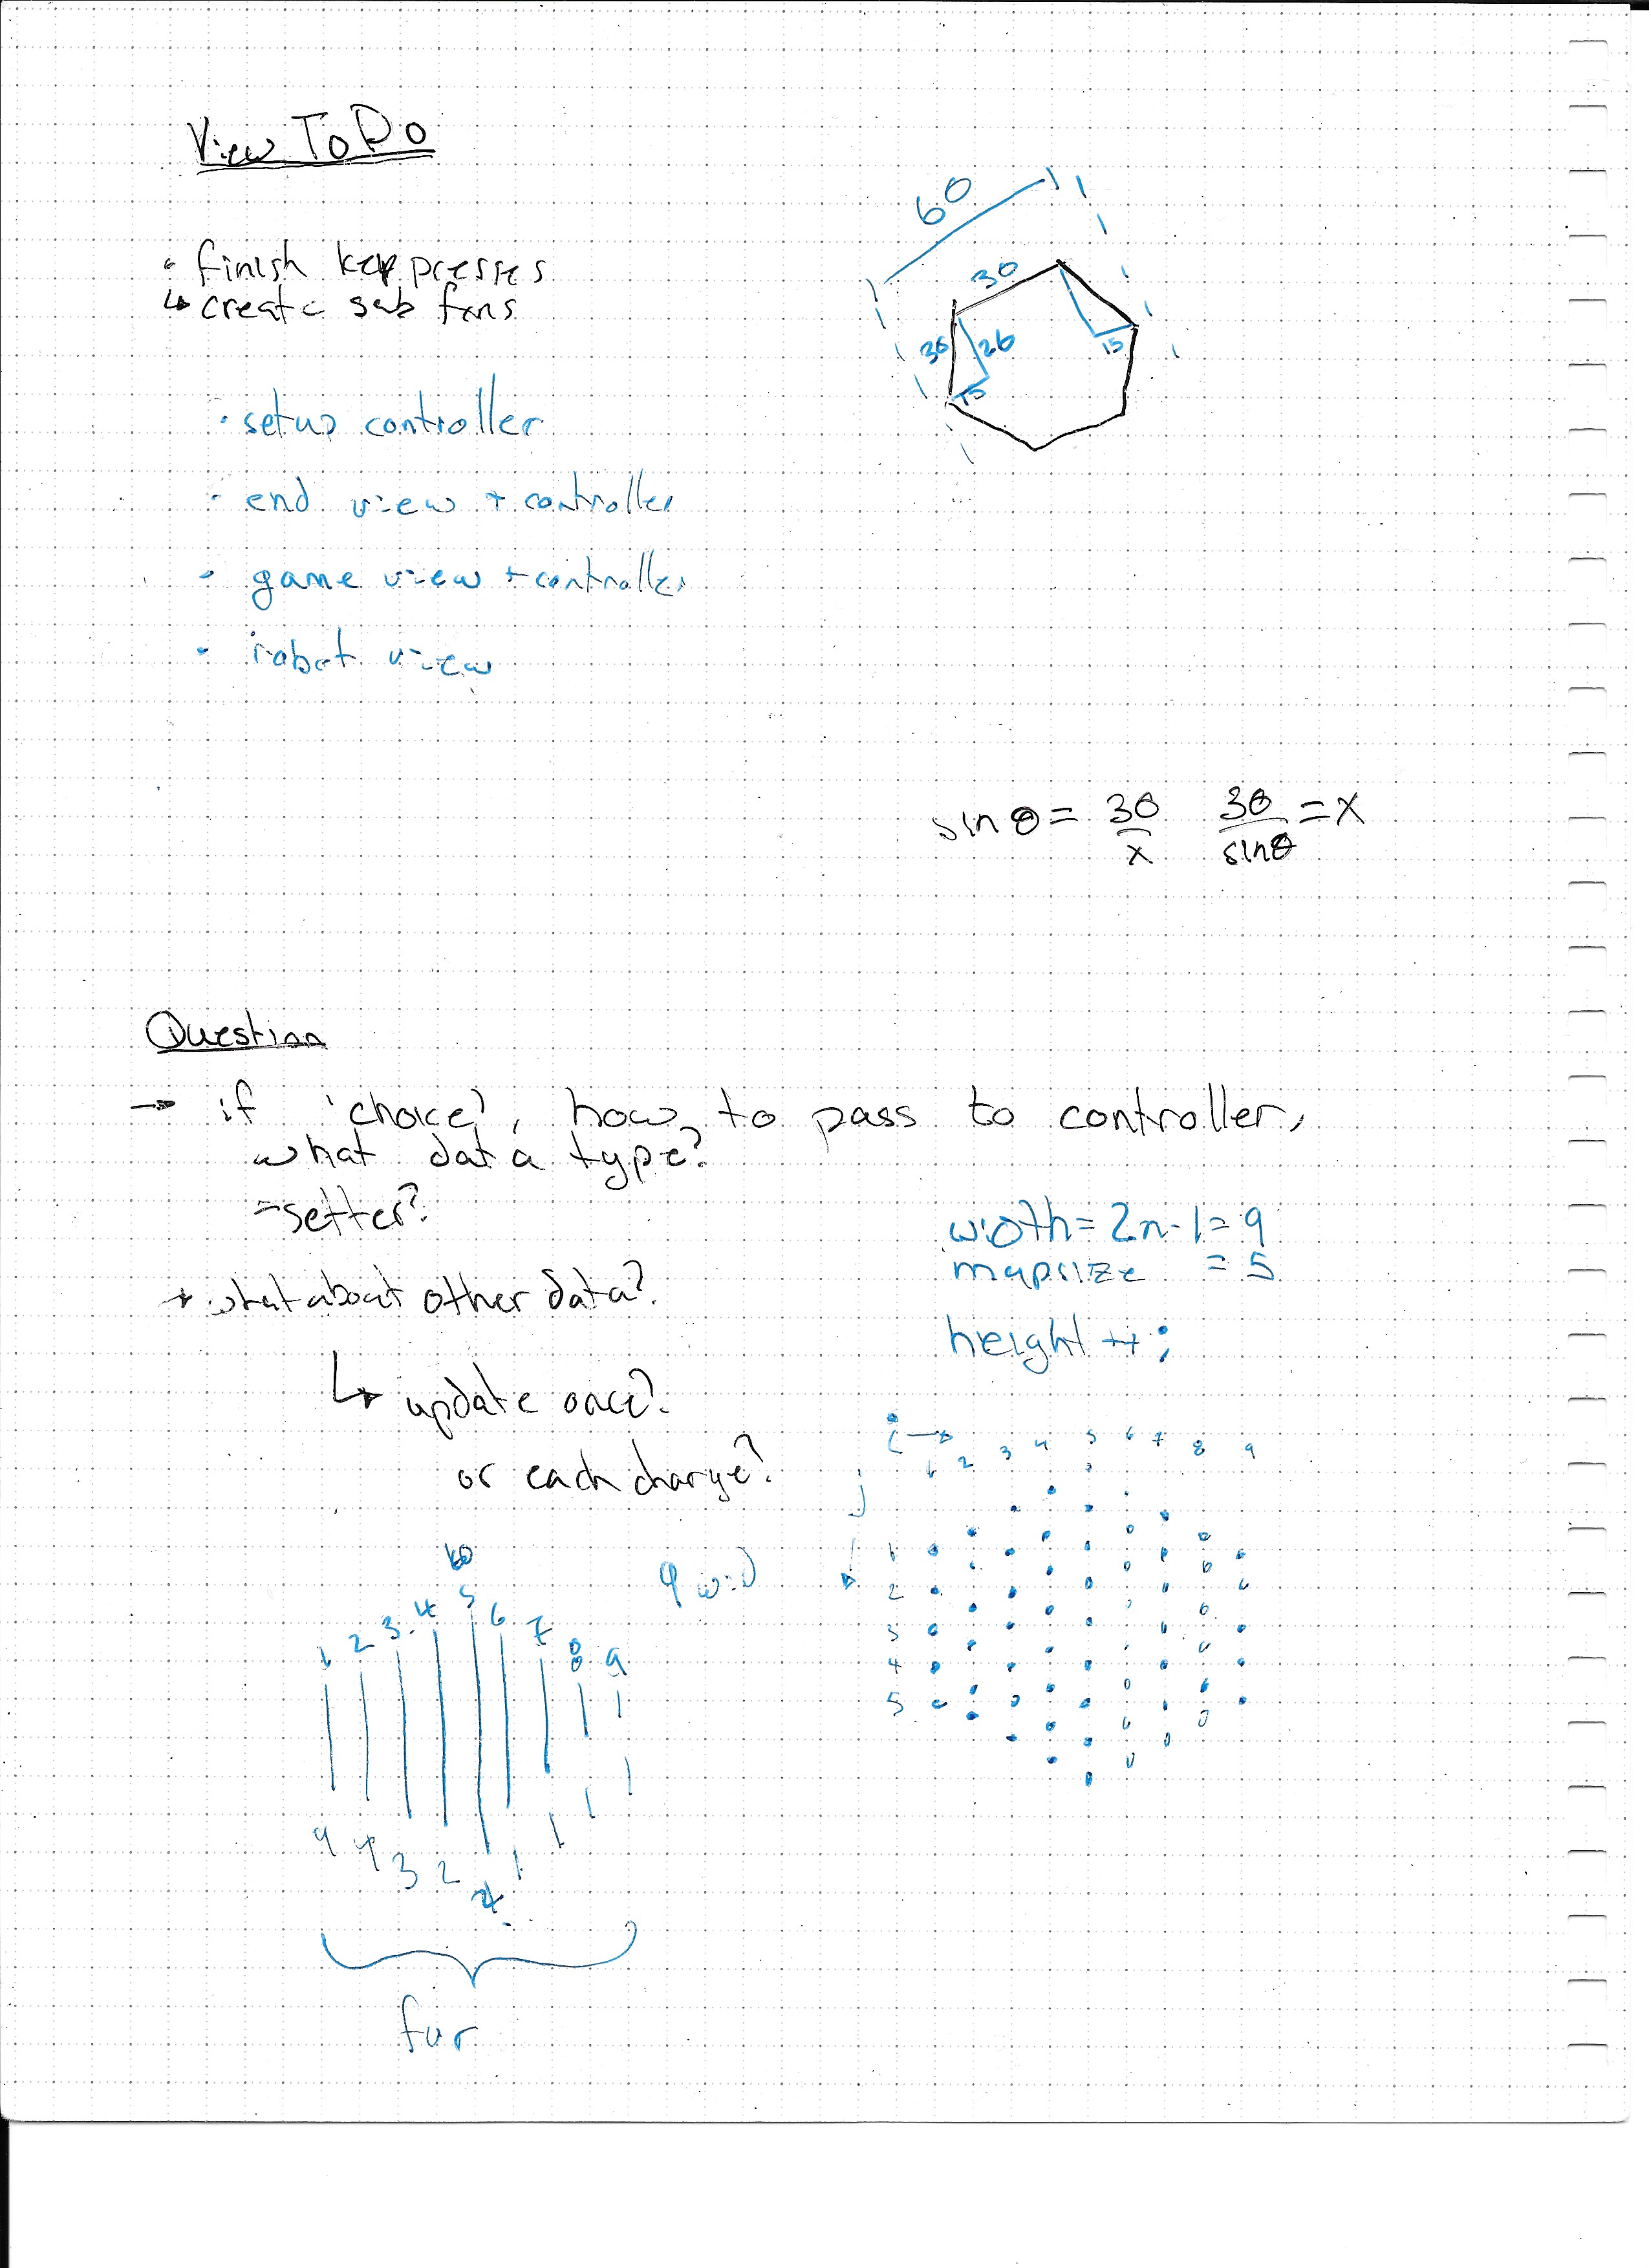 View ToDo
• finish key presses
↳ create sub fxns
• setup controller
• end view + controller
• game view + controller
• robot view
60
30
30 26 15
15
sin θ = 30/x 30/sinθ = x
Question
→ if 'choice', how to pass to controller,
what data type?
→ setter?
→ what about other data?
↳ update once?
or each change?
width = 2n-1 = 9
mapsize = 5
height ++;
i →
1 2 3 4 5 6 7 8 9
j
1
2
3
4
5
9 wid
1 2 3 4 5 6 7 8 9
4 3 2
for